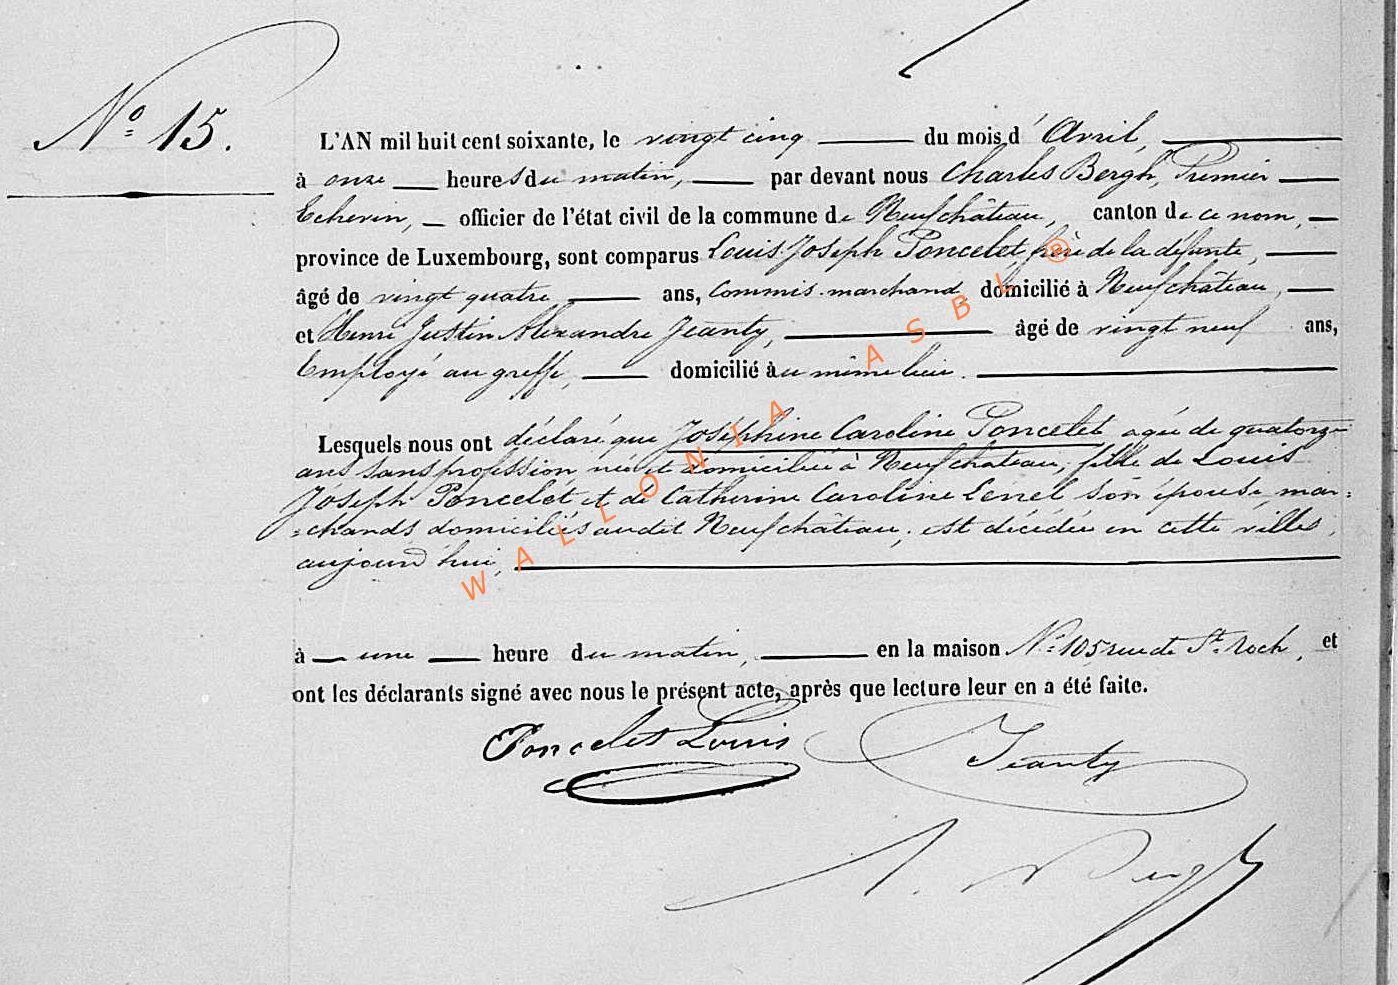 N° 15.
L'AN mil huit cent soixante, le vingt cinq du mois d'Avril,
à onze heures du matin, par devant nous Charles Bergh, Premier
Echevin, officier de l'état civil de la commune de Neufchâteau, canton de ce nom,
province de Luxembourg, sont comparus Louis Joseph Poncelet frère de la défunte,
âgé de vingt quatre ans, Commis-marchand domicilié à Neufchâteau,
et Henri Justin Alexandre Jeanty, âgé de vingt neuf ans,
Employé au greffe, domicilié au même lieu.
Lesquels nous ont déclaré que Joséphine Caroline Poncelet agée de quatorze
ans sans profession née et domiciliée à Neufchateau, fille de Louis
Joseph Poncelet et de Catherine Caroline Lenel son épouse, mar-
-chands domiciliés audit Neufchâteau, est décédée en cette ville,
aujourd'hui,
à une heure du matin, en la maison N° 105 rue de St. Roch, et
ont les déclarants signé avec nous le présent acte, après que lecture leur en a été faite.
Poncelet Louis Jeanty
WALLONIA ASBL ®